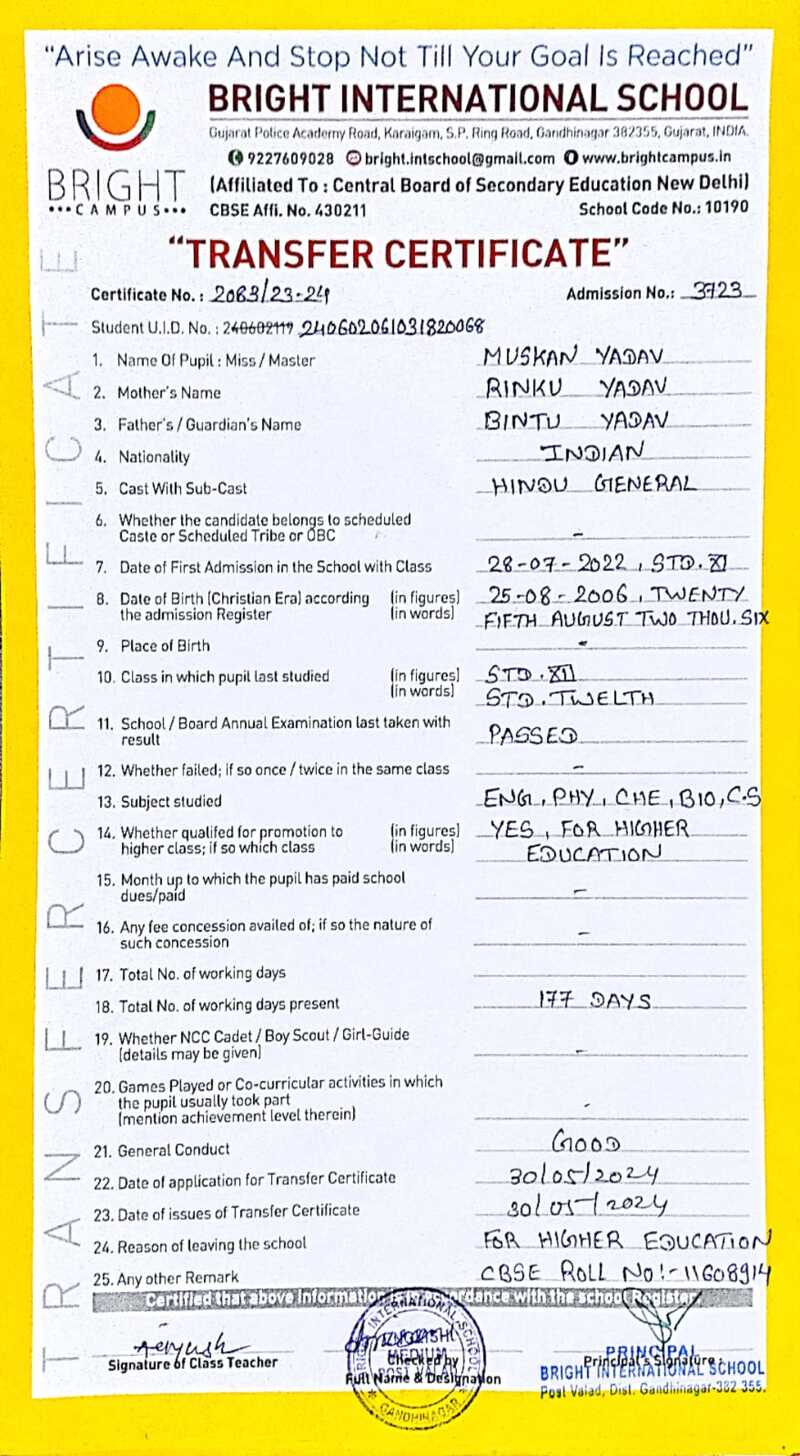 "Arise Awake And Stop Not Till Your Goal Is Reached"
BRIGHT
•••CAMPUS•••
BRIGHT INTERNATIONAL SCHOOL
Gujarat Police Academy Road, Karaigam, S.P. Ring Road, Gandhinagar 382355, Gujarat, INDIA.
9227609028 bright.intschool@gmail.com www.brightcampus.in
(Affiliated To : Central Board of Secondary Education New Delhi)
CBSE Affi. No. 430211 School Code No.: 10190
"TRANSFER CERTIFICATE"
Certificate No. : 2083/23-24 Admission No.: 3723
Student U.I.D. No. : 240602119 240602061031820068
1. Name Of Pupil : Miss / Master MUSKAN YADAV
2. Mother's Name RINKU YADAV
3. Father's / Guardian's Name BINTU YADAV
4. Nationality INDIAN
5. Cast With Sub-Cast HINDU GENERAL
6. Whether the candidate belongs to scheduled
Caste or Scheduled Tribe or OBC –
7. Date of First Admission in the School with Class 28-07-2022, STD. XI
8. Date of Birth (Christian Era) according (in figures) 25-08-2006, TWENTY
the admission Register (in words) FIFTH AUGUST TWO THOU. SIX
9. Place of Birth -
10. Class in which pupil last studied (in figures) STD. XII
(in words) STD. TWELTH
11. School / Board Annual Examination last taken with
result PASSED
12. Whether failed; if so once / twice in the same class –
13. Subject studied ENG, PHY, CHE, BIO, C.S
14. Whether qualifed for promotion to (in figures) YES, FOR HIGHER
higher class; if so which class (in words) EDUCATION
15. Month up to which the pupil has paid school
dues/paid –
16. Any fee concession availed of; if so the nature of
such concession –
17. Total No. of working days
18. Total No. of working days present 177 DAYS
19. Whether NCC Cadet / Boy Scout / Girl-Guide
(details may be given) –
20. Games Played or Co-curricular activities in which
the pupil usually took part
(mention achievement level therein) -
21. General Conduct GOOD
22. Date of application for Transfer Certificate 30/05/2024
23. Date of issues of Transfer Certificate 30/05/2024
24. Reason of leaving the school FOR HIGHER EDUCATION
25. Any other Remark CBSE ROLL NO:-11608914
Certified that above Information is in accordance with the school Register.
Signature of Class Teacher
Checked by
Full Name & Designation
BRIGHT INTERNATIONAL SCHOOL
MEDIUM
POST VALAD
GANDHINAGAR
Principal's Signature
PRINCIPAL
BRIGHT INTERNATIONAL SCHOOL
Post Valad, Dist. Gandhinagar-382 355.
TRANSFER CERTIFICATE